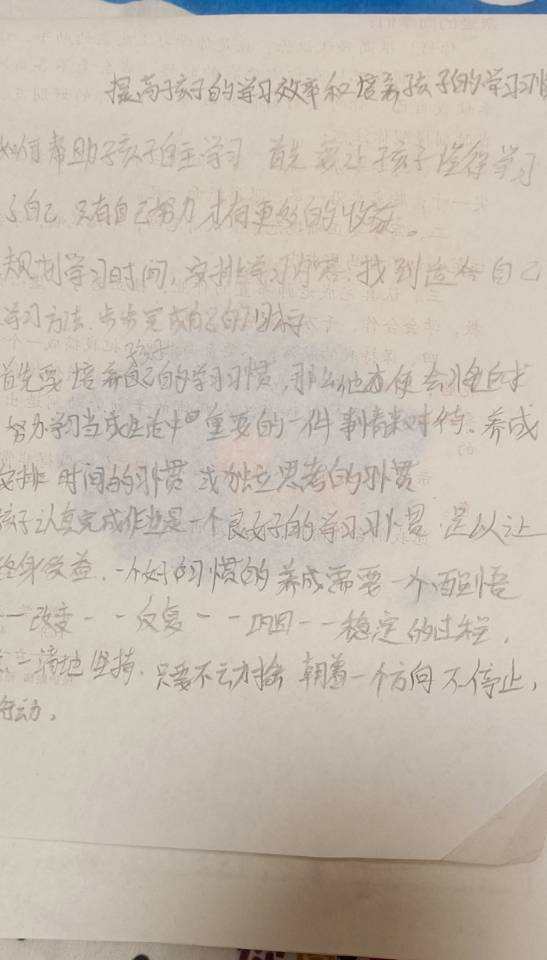 提高孩子的学习效率和培养孩子的学习习惯
如何帮助孩子自主学习 首先要让孩子懂得学习
了自己 只有自己努力才有更多的收获。
规划学习时间,安排学习内容,找到适合自己
学习方法,步步完成自己的目标
首先要培养自己的学习习惯,那么他便会将
孩子
努力学习当成生活中重要的一件事情来对待。养成
安排时间的习惯 或独立思考的习惯
孩子认真完成作业是一个良好的学习习惯,足以让
终身受益,一个好的习惯的养成需要一个醒悟
一改变一一反复一一巩固一一稳定的过程,
一一满地坚持,只要不云力摇 朝着一个方向不停止,